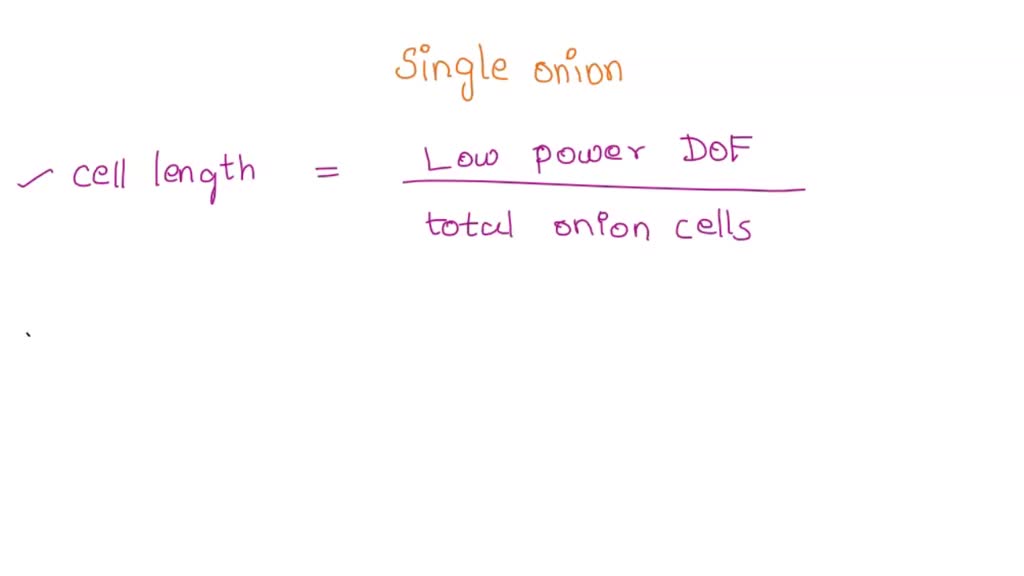 Single onion
cell length = Low power DOF
total onion cells